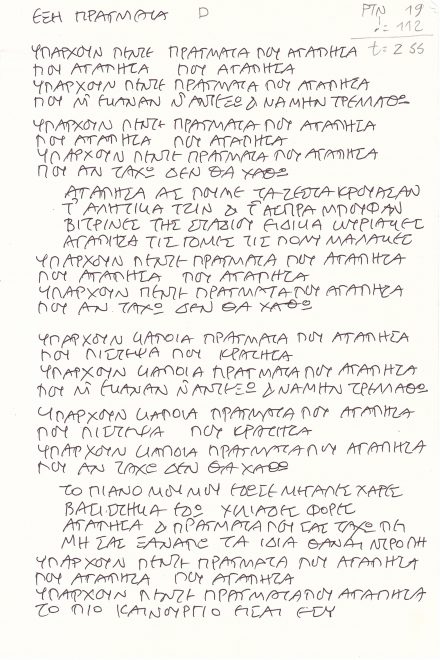 ΕΞΗ ΠΡΑΓΜΑΤΑ D
PTN 19
♩= 112
t= 2 55
ΥΠΑΡΧΟΥΝ ΠΕΝΤΕ ΠΡΑΓΜΑΤΑ ΠΟΥ ΑΓΑΠΗΣΑ
ΠΟΥ ΑΓΑΠΗΣΑ ΠΟΥ ΑΓΑΠΗΣΑ
ΥΠΑΡΧΟΥΝ ΠΕΝΤΕ ΠΡΑΓΜΑΤΑ ΠΟΥ ΑΓΑΠΗΣΑ
ΠΟΥ Μ' ΕΚΑΝΑΝ Ν' ΑΝΤΕΞΩ & ΝΑ ΜΗΝ ΤΡΕΜΑΘΩ
ΥΠΑΡΧΟΥΝ ΠΕΝΤΕ ΠΡΑΓΜΑΤΑ ΠΟΥ ΑΓΑΠΗΣΑ
ΠΟΥ ΑΓΑΠΗΣΑ ΠΟΥ ΑΓΑΠΗΣΑ
ΥΠΑΡΧΟΥΝ ΠΕΝΤΕ ΠΡΑΓΜΑΤΑ ΠΟΥ ΑΓΑΠΗΣΑ
ΠΟΥ ΑΝ ΤΑΧΩ ΔΕΝ ΘΑ ΧΑΘΩ
ΑΓΑΠΗΣΑ ΑΣ ΠΟΥΜΕ ΤΑ ΖΕΣΤΑ ΚΡΟΥΑΣΑΝ
Τ' ΑΛΗΤΙΚΑ ΤΖΙΝ & Τ' ΑΣΠΡΑ ΜΠΟΥΦΑΝ
ΒΙΤΡΙΝΕΣ ΤΗΣ ΣΤΑΔΙΟΥ ΕΙΔΙΚΑ ΚΥΡΙΑΚΕΣ
ΑΓΑΠΗΣΑ ΤΙΣ ΓΟΜΕΣ ΤΙΣ ΠΟΛΥ ΜΑΛΑΚΕΣ
ΥΠΑΡΧΟΥΝ ΠΕΝΤΕ ΠΡΑΓΜΑΤΑ ΠΟΥ ΑΓΑΠΗΣΑ
ΠΟΥ ΑΓΑΠΗΣΑ ΠΟΥ ΑΓΑΠΗΣΑ
ΥΠΑΡΧΟΥΝ ΠΕΝΤΕ ΠΡΑΓΜΑΤΑ ΠΟΥ ΑΓΑΠΗΣΑ
ΠΟΥ ΑΝ ΤΑΧΩ ΔΕΝ ΘΑ ΧΑΘΩ
ΥΠΑΡΧΟΥΝ ΚΑΠΟΙΑ ΠΡΑΓΜΑΤΑ ΠΟΥ ΑΓΑΠΗΣΑ
ΠΟΥ ΠΙΣΤΕΨΑ ΠΟΥ ΚΡΑΤΗΣΑ
ΥΠΑΡΧΟΥΝ ΚΑΠΟΙΑ ΠΡΑΓΜΑΤΑ ΠΟΥ ΑΓΑΠΗΣΑ
ΠΟΥ Μ' ΕΚΑΝΑΝ Ν' ΑΝΤΕΞΩ & ΝΑ ΜΗΝ ΤΡΕΜΑΘΩ
ΥΠΑΡΧΟΥΝ ΚΑΠΟΙΑ ΠΡΑΓΜΑΤΑ ΠΟΥ ΑΓΑΠΗΣΑ
ΠΟΥ ΠΙΣΤΕΨΑ ΠΟΥ ΚΡΑΤΗΣΑ
ΥΠΑΡΧΟΥΝ ΚΑΠΟΙΑ ΠΡΑΓΜΑΤΑ ΠΟΥ ΑΓΑΠΗΣΑ
ΠΟΥ ΑΝ ΤΑΧΩ ΔΕΝ ΘΑ ΧΑΘΩ
ΤΟ ΠΙΑΝΟ ΜΟΥ ΜΟΥ ΕΔΩΣΕ ΜΕΓΑΛΕΣ ΧΑΡΕΣ
ΒΑΣΙΣΤΗΚΑ ΕΔΩ ΧΙΛΙΑΔΕΣ ΦΟΡΕΣ
ΑΓΑΠΗΣΑ & ΠΡΑΓΜΑΤΑ ΠΟΥ ΣΑΣ ΤΑΧΩ ΠΕΙ
ΜΗ ΣΑΣ ΞΑΝΑΠΩ ΤΑ ΙΔΙΑ ΘΑΝΑΙ ΝΤΡΟΠΗ
ΥΠΑΡΧΟΥΝ ΠΕΝΤΕ ΠΡΑΓΜΑΤΑ ΠΟΥ ΑΓΑΠΗΣΑ
ΠΟΥ ΑΓΑΠΗΣΑ ΠΟΥ ΑΓΑΠΗΣΑ
ΥΠΑΡΧΟΥΝ ΠΕΝΤΕ ΠΡΑΓΜΑΤΑ ΠΟΥ ΑΓΑΠΗΣΑ
ΤΟ ΠΙΟ ΚΑΙΝΟΥΡΓΙΟ ΕΙΣΑΙ ΕΣΥ